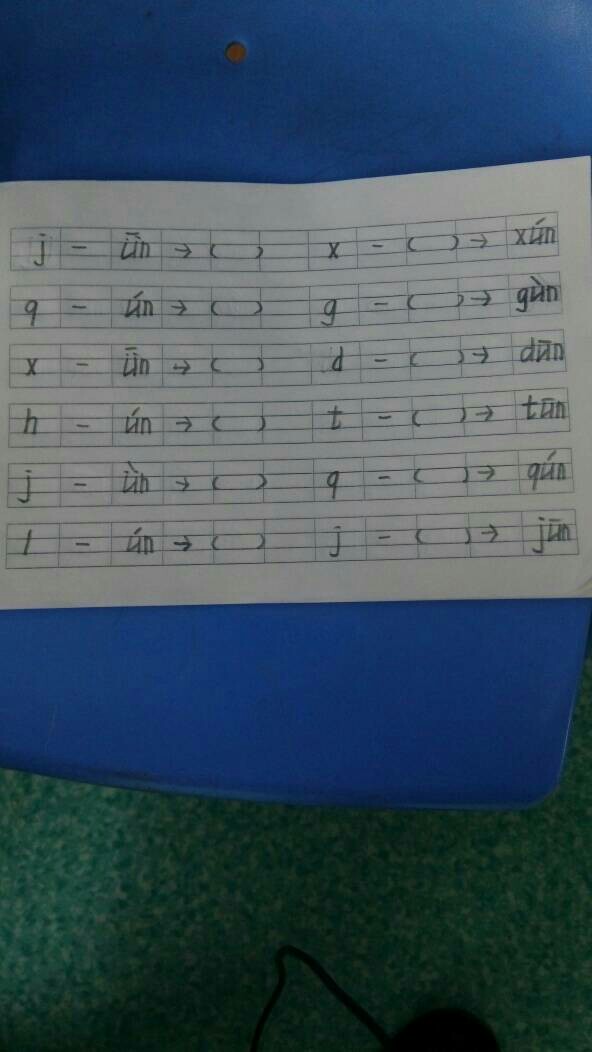 j - ǖn → ( ) x - ( ) → xún
q - ǘn → ( ) g - ( ) → gùn
x - ǖn → ( ) d - ( ) → dūn
h - ún → ( ) t - ( ) → tūn
j - ǜn → ( ) q - ( ) → qún
l - ún → ( ) j - ( ) → jūn